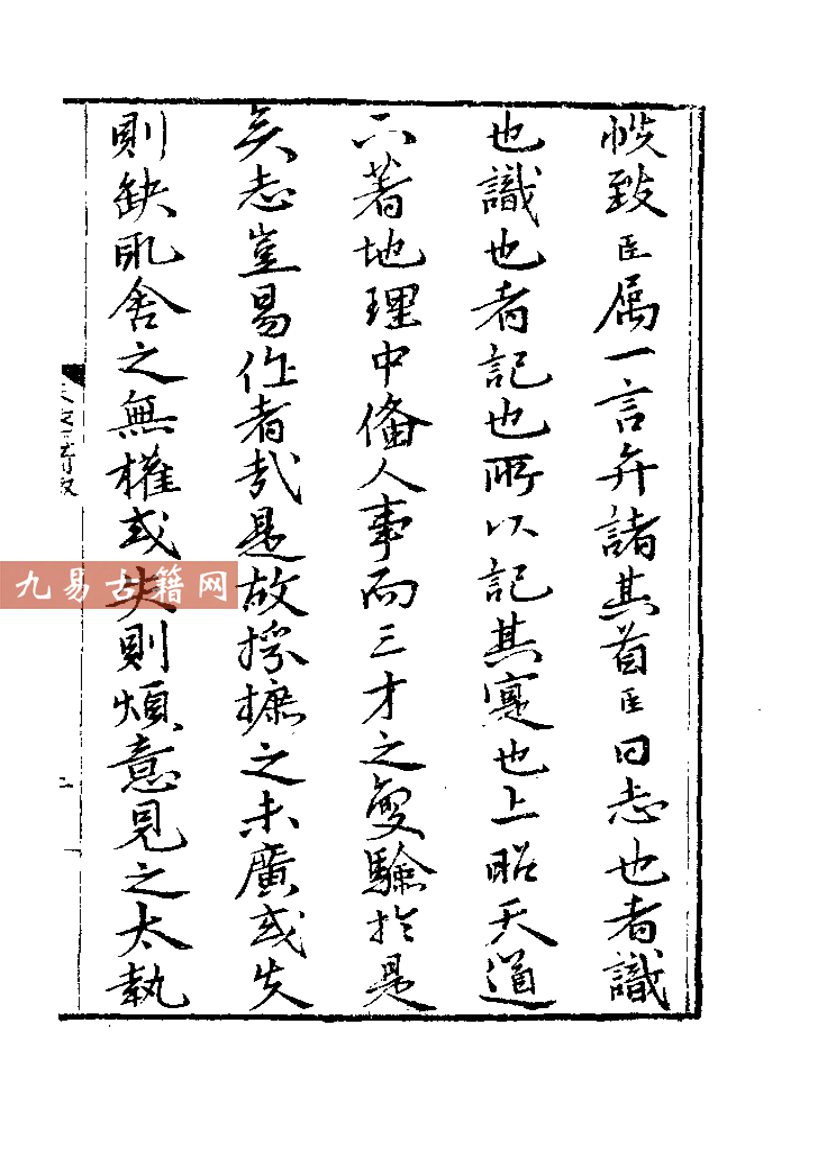 帙致臣属一言弁諸其首臣曰志也者識
也識也者記也所以記其寔也上昭天道
下著地理中俻人事而三才之夐驗扵是
矣志豈易作者哉是故採摭之未廣或失
則缺取舍之無權或失則煩意見之太執
二
九易古籍网